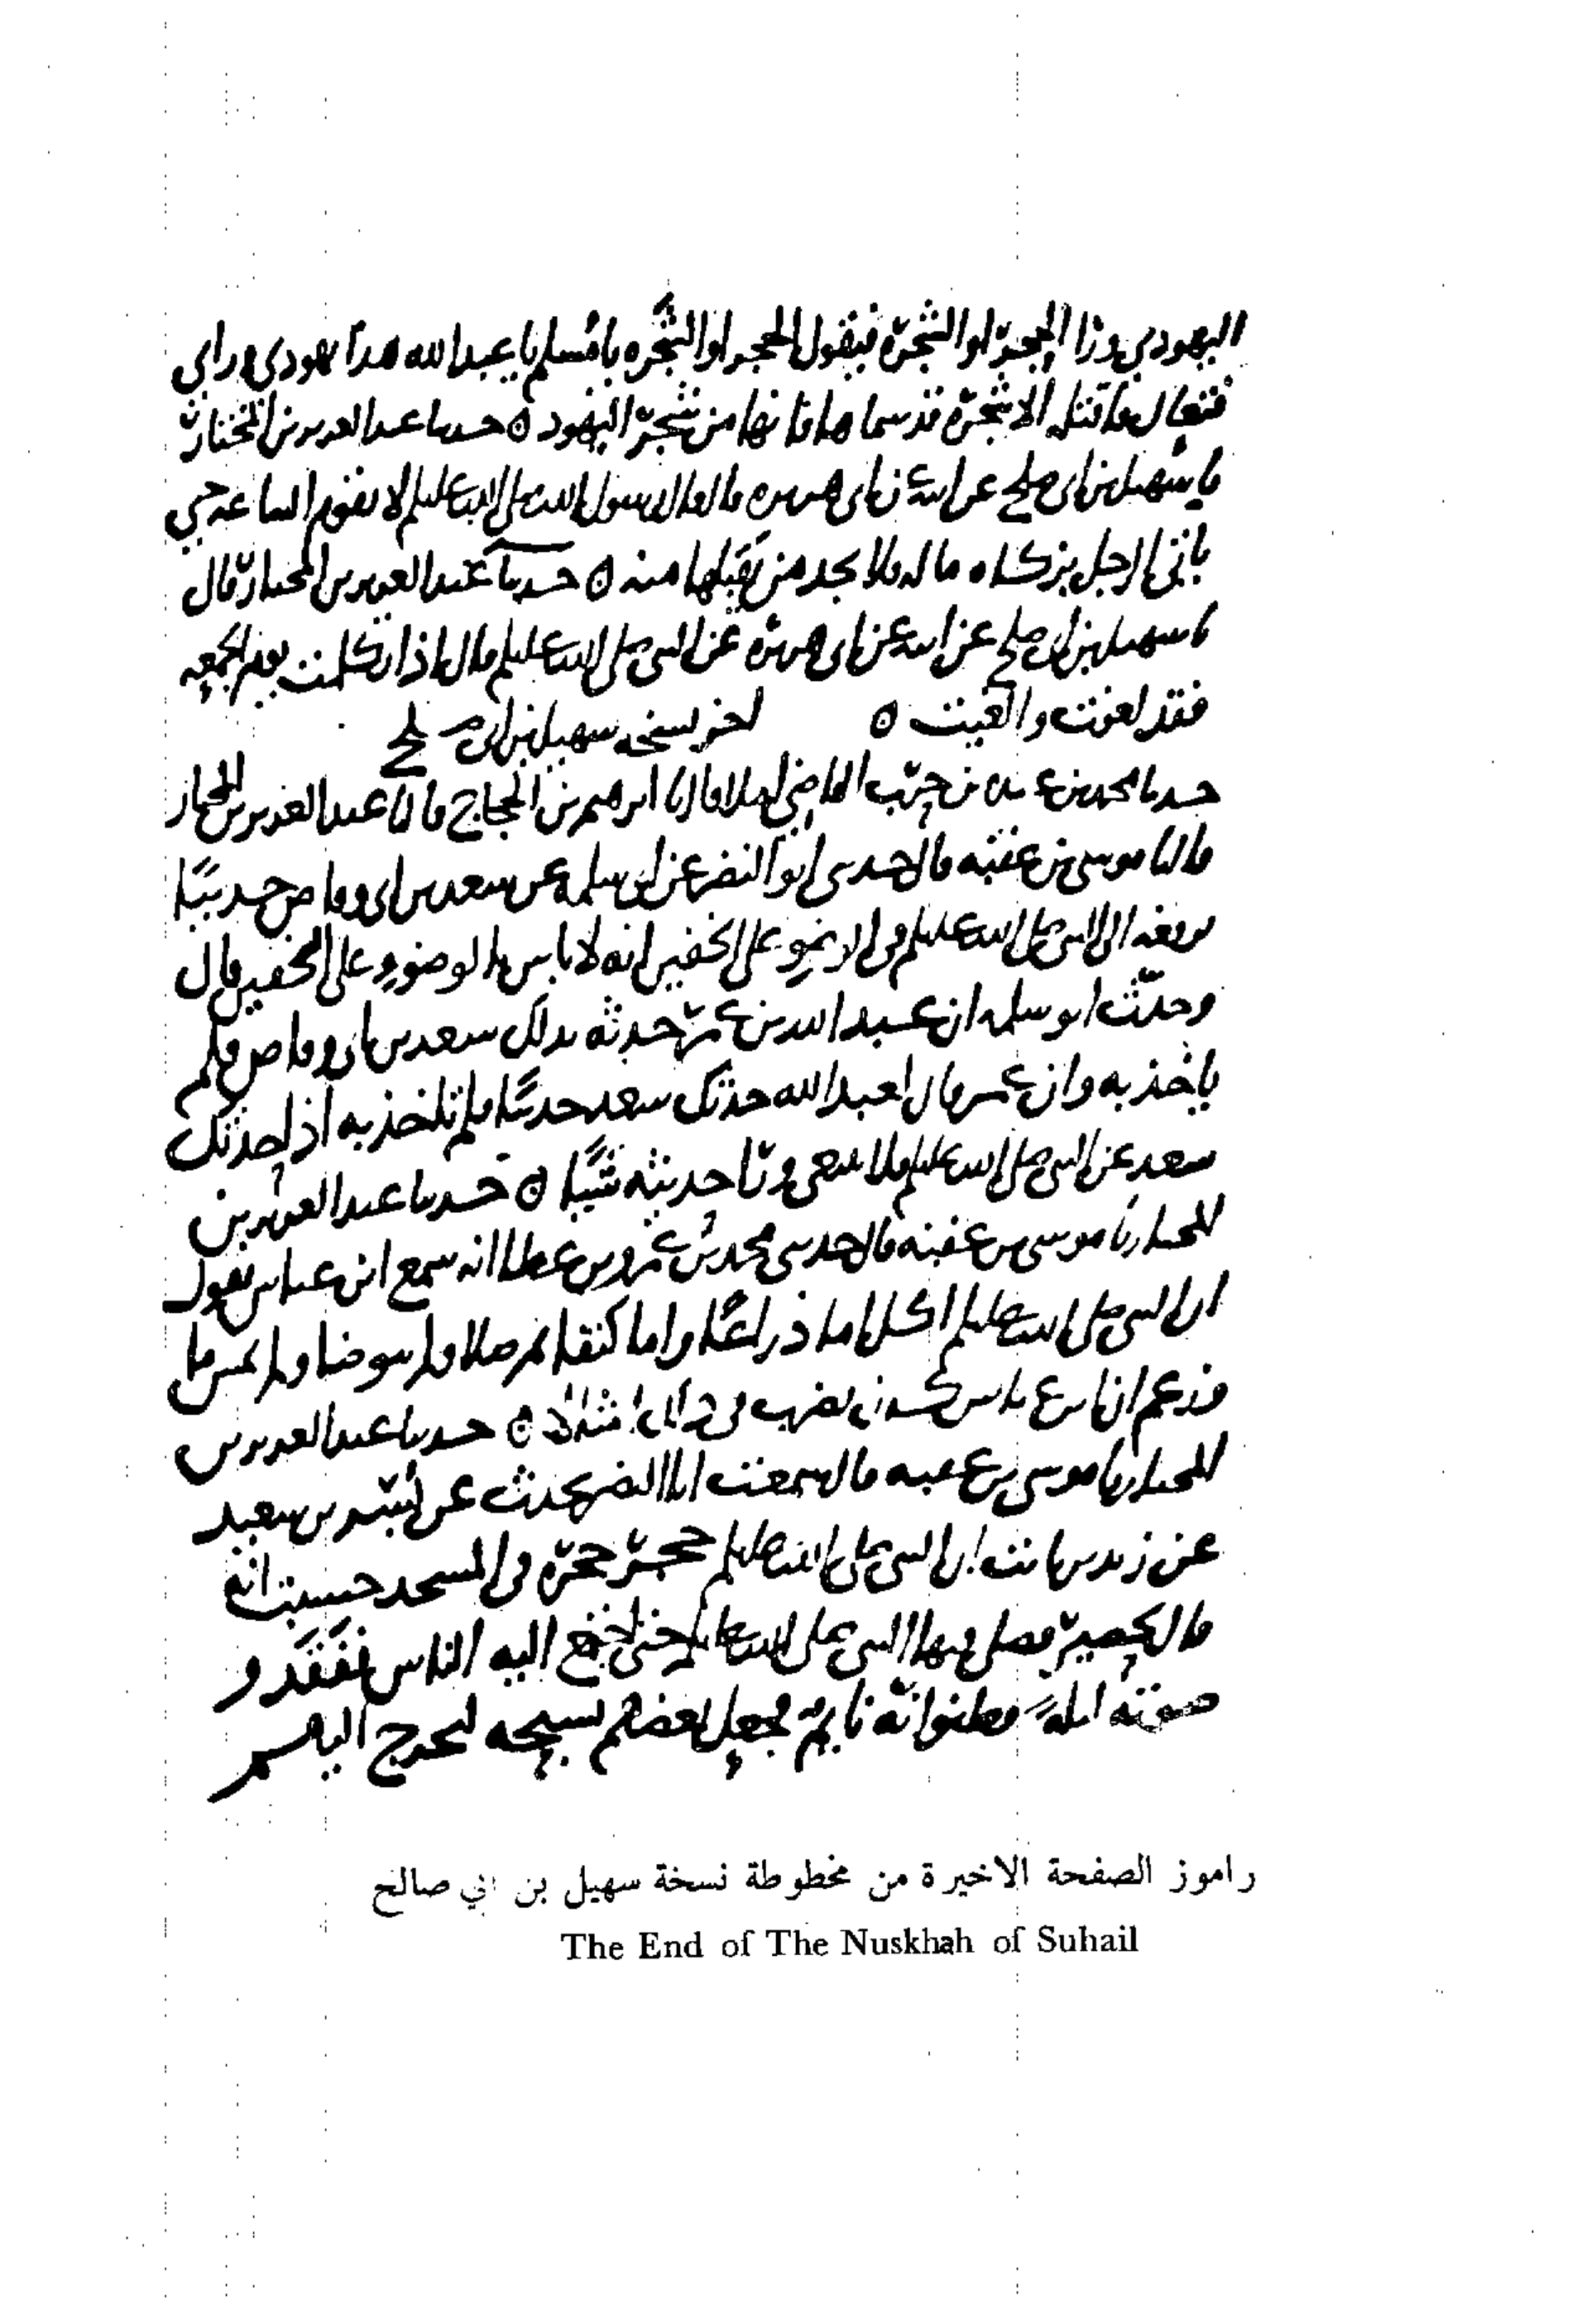 اليهودي ورا الحجر او الشجرة فيقول الحجر او الشجره يا مسلم يا عبد الله هذا يهودي وراي
فتعال فاقتله الا شجرة قد سماها فانها من شجر اليهود ه حدثنا عبد العزيز بن المختار
نا سهيل بن ابي صلح عن ابيه عن ابي هريره قال قال رسول الله صلى الله عليه لا تقوم الساعه حتى
ياتي الرجل بزكاه ماله فلا يجد من يقبلها منه ه حدثنا عبد العزيز بن المختار قال
نا سهيل بن ابي صلح عن ابيه عن ابي هريرة عن النبي صلى الله عليه قال اذا تكلمت يوم الجمعه
فقد لغوت والغيت ه اخر نسخه سهيل بن ابي صلح
حدثنا محمد بن عبده بن حرب القاضي املا قال نا ابرهيم بن الحجاج قال نا عبد العزيز بن المختار
قال نا موسى بن عقبه قال حدثني ابو النضر عن ابي سلمه عن سعد بن ابي وقاص حديثا
يرفعه الى النبي صلى الله عليه في الوضو على الخفين انه لا باس بالوضوء على الخفين قال
وحدث ابو سلمه ان عبد الله بن عمر حدثه بذلك سعد بن ابي وقاص فلم
ياخذ به وان عمر قال لعبد الله حدثك سعد حديثا فلم تاخذ به اذا حدثك
سعد عن النبي صلى الله عليه فلا تبتغي ورا حديثه شيا ه حدثنا عبد العزيز بن
المختار نا موسى بن عقبه قال حدثني محمد بن عمرو بن عطا انه سمع ابن عباس يقول
ان النبي صلى الله عليه اكل اما ذراعا واما كتفا ثم صلا ولم يتوضا ولم يمس ما
فزعم ان ابن عباس كان يضرب في ذلك امثالا ه حدثنا عبد العزيز بن
المختار نا موسى بن عقبه قال سمعت ابا النضر يحدث عن بسر بن سعيد
عن زيد بن ثابت ان النبي صلى الله عليه حجر حجرة في المسجد حسبت انه
قال بحصير فصلى فيها النبي صلى الله عليه حتى اجتمع اليه الناس ففقدو
صوته ليلة فظنوا انه نايم فجعل بعضهم يسبحه ليخرج اليهم
راموز الصفحة الاخيرة من مخطوطة نسخة سهيل بن ابي صالح
The End of The Nuskhah of Suhail